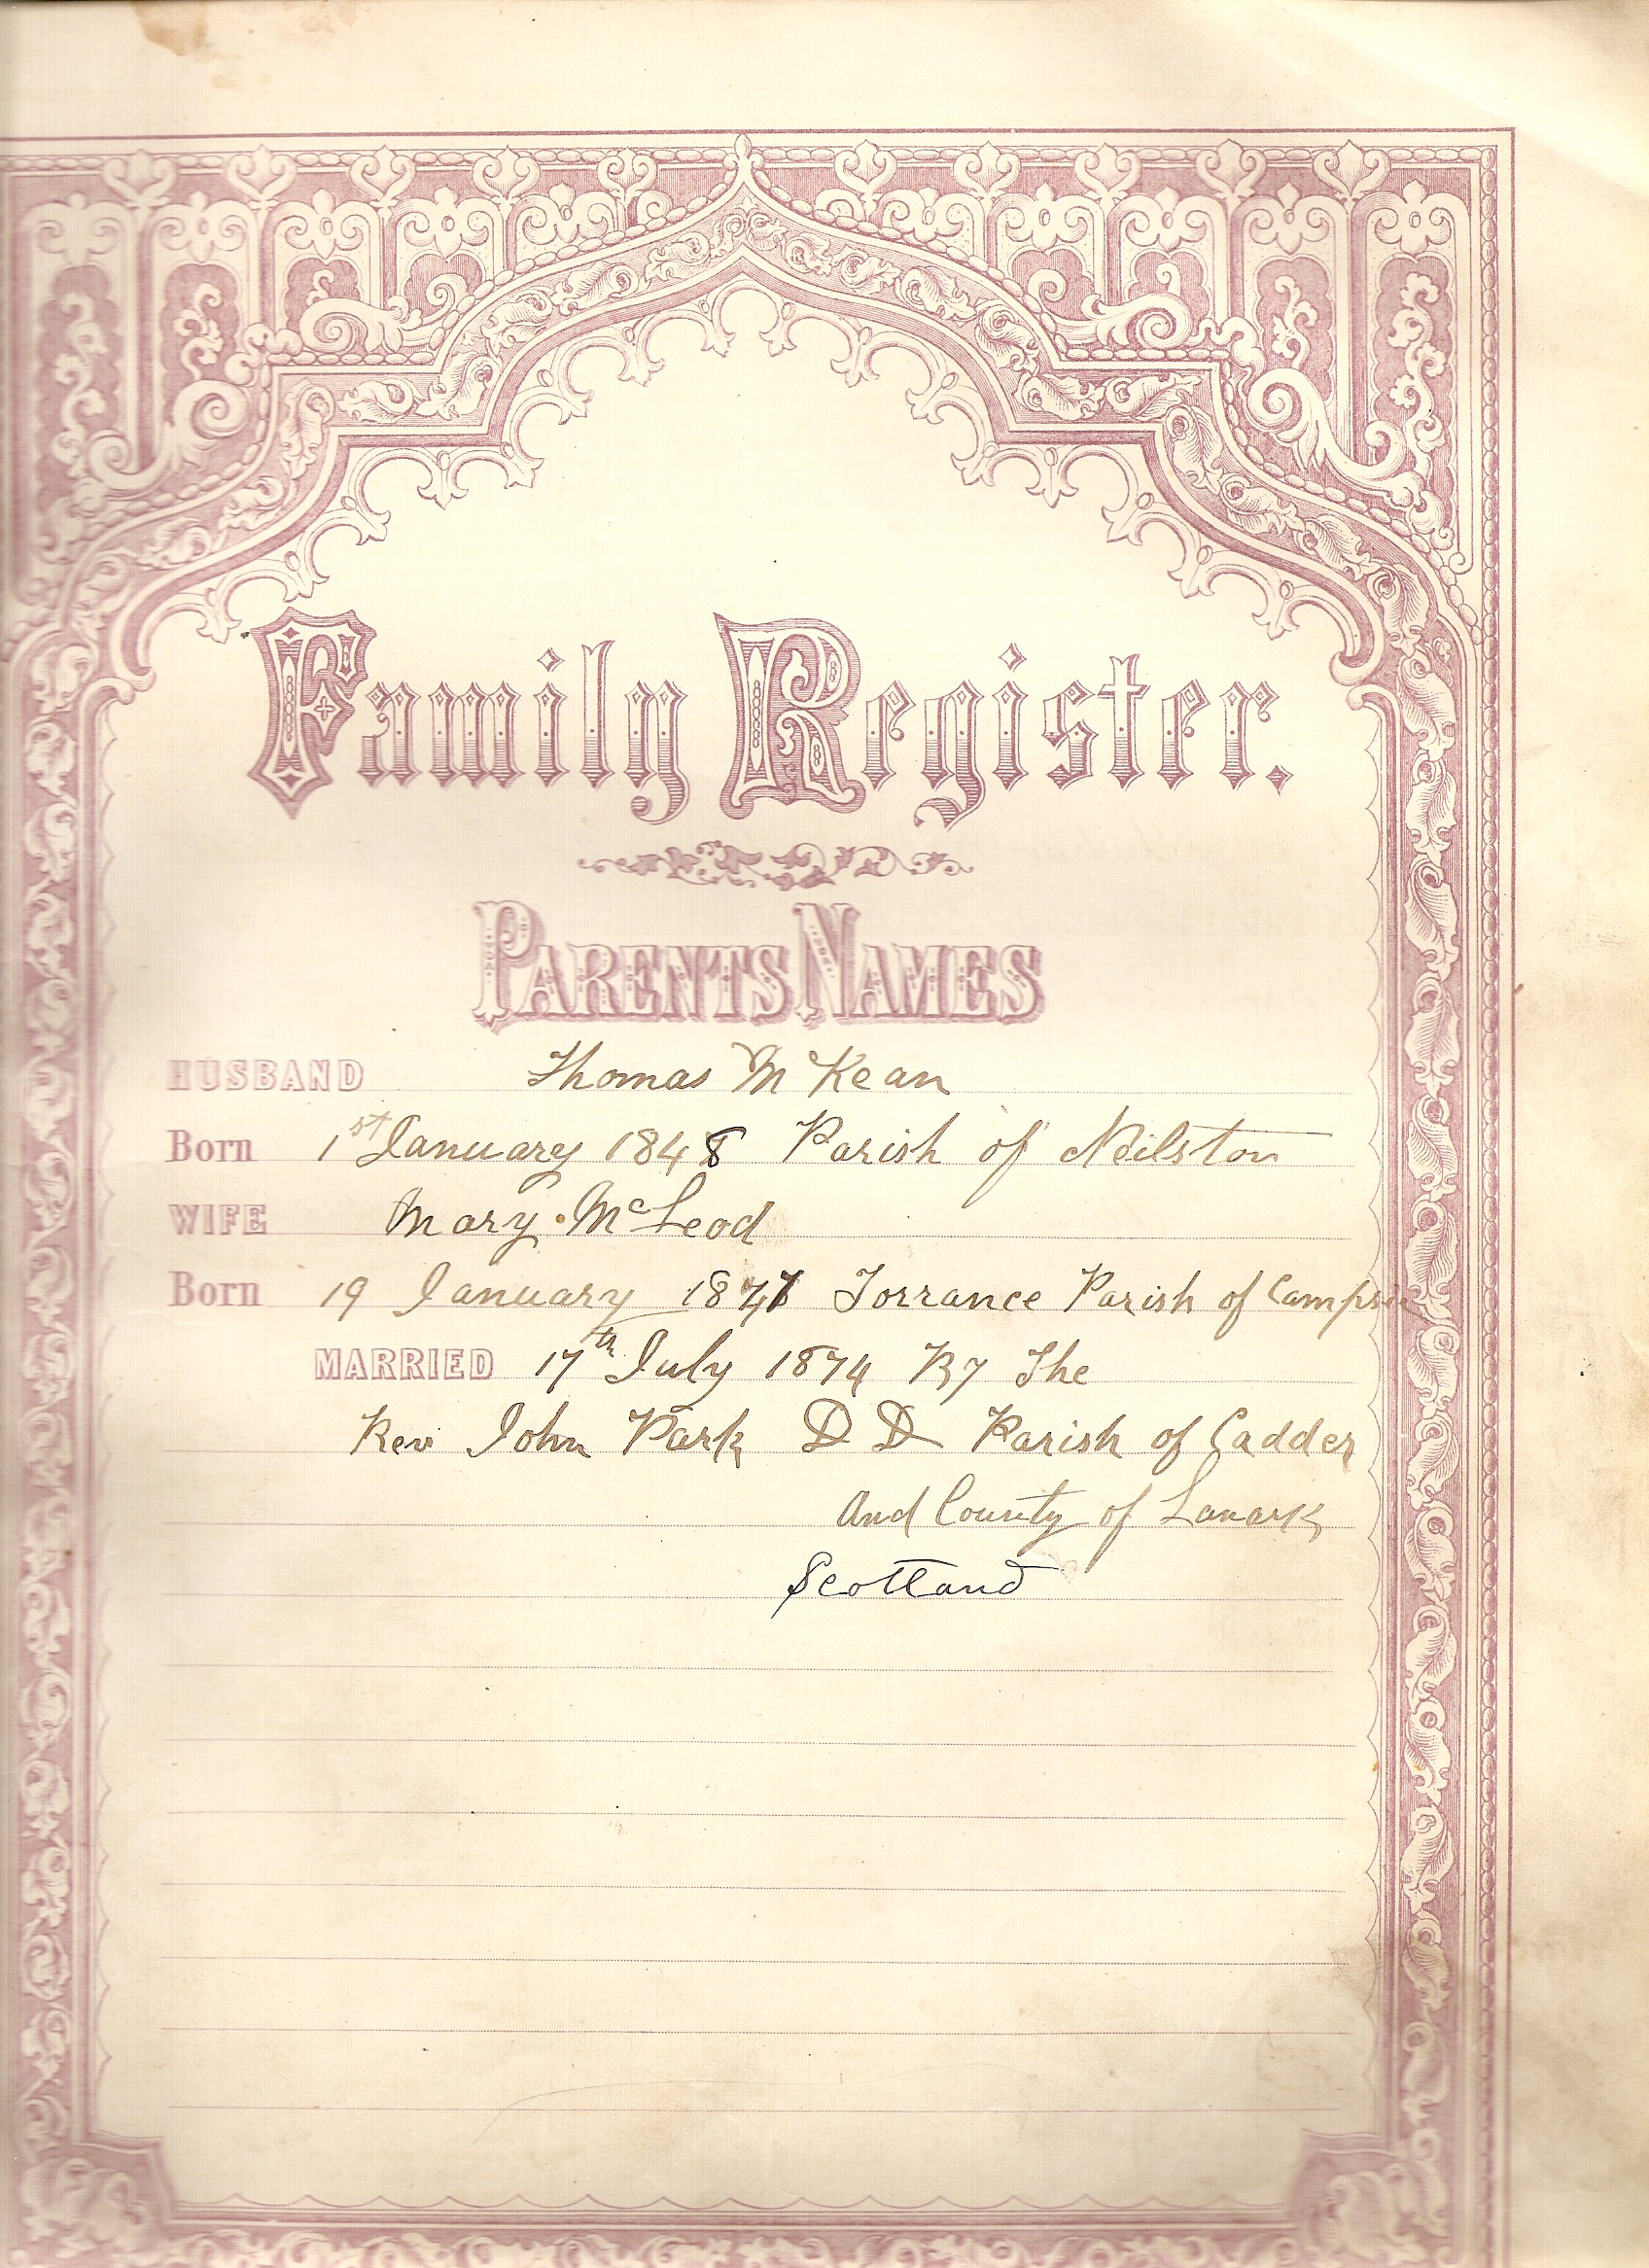 Family Register.
PARENTS NAMES
HUSBAND Thomas McKean
Born 1st January 1848 Parish of Neilston
WIFE Mary McLeod
Born 19 January Torrance Parish of Campsie
MARRIED 17th July 1874 By The
Rev John Park D D Parish of Cadder
And County of Lanark
Scotland